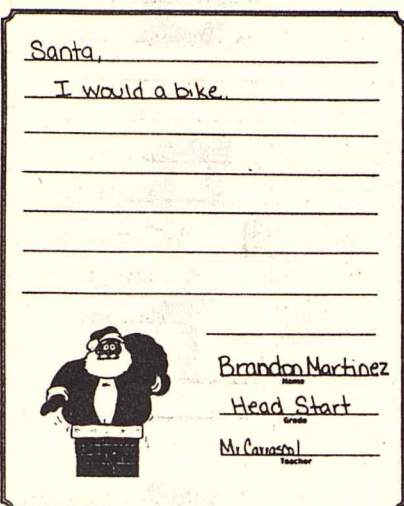 Santa,
I would a bike.
Brandon Martinez
Name
Head Start
Grade
Teacher